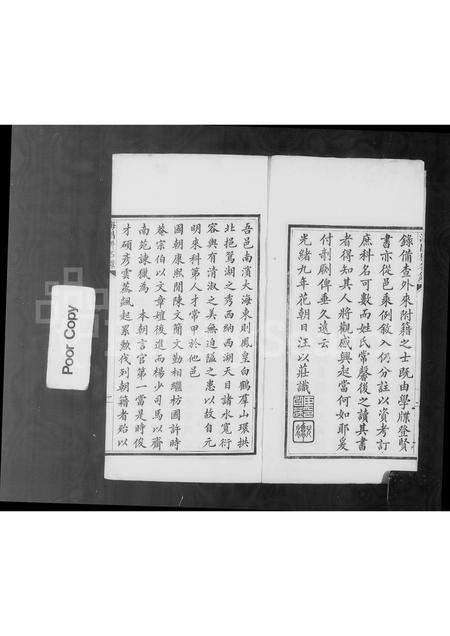 錄備查外來附籍之士既由學牒登賢
書亦從邑乘例敘入仍分註以資考訂
庶科名可數而姓氏常馨後之讀其書
者得知其人將觀感興起當何如耶爰
付剞劂俾垂久遠云
光緒九年花朝日汪以莊識
吾邑南濱大海東則鳳皇白鶴羣山環拱
北挹鴛湖之秀西納西湖天目諸水寬衍
容與有清淑之美無迫隘之患以故自元
明來科第人才常甲於他邑
國朝康熙間陳文簡文勤相繼枋國許時
菴宗伯以文章壇後進而楊少司馬以齋
南苑諫獵為 本朝言官第一當是時俊
才碩彥雲蒸飆起累勲伐列朝籍者殆以
Poor Copy